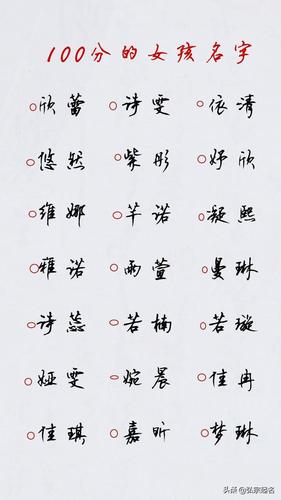 100分的女孩名字
欣蕾 诗雯 依清
悠然 紫彤 妤欣
维娜 芊诺 凝熙
雅诺 雨萱 曼琳
诗蕊 若楠 若璇
娅雯 婉晨 佳冉
佳琪 嘉昕 梦琳
头条@弘宗起名